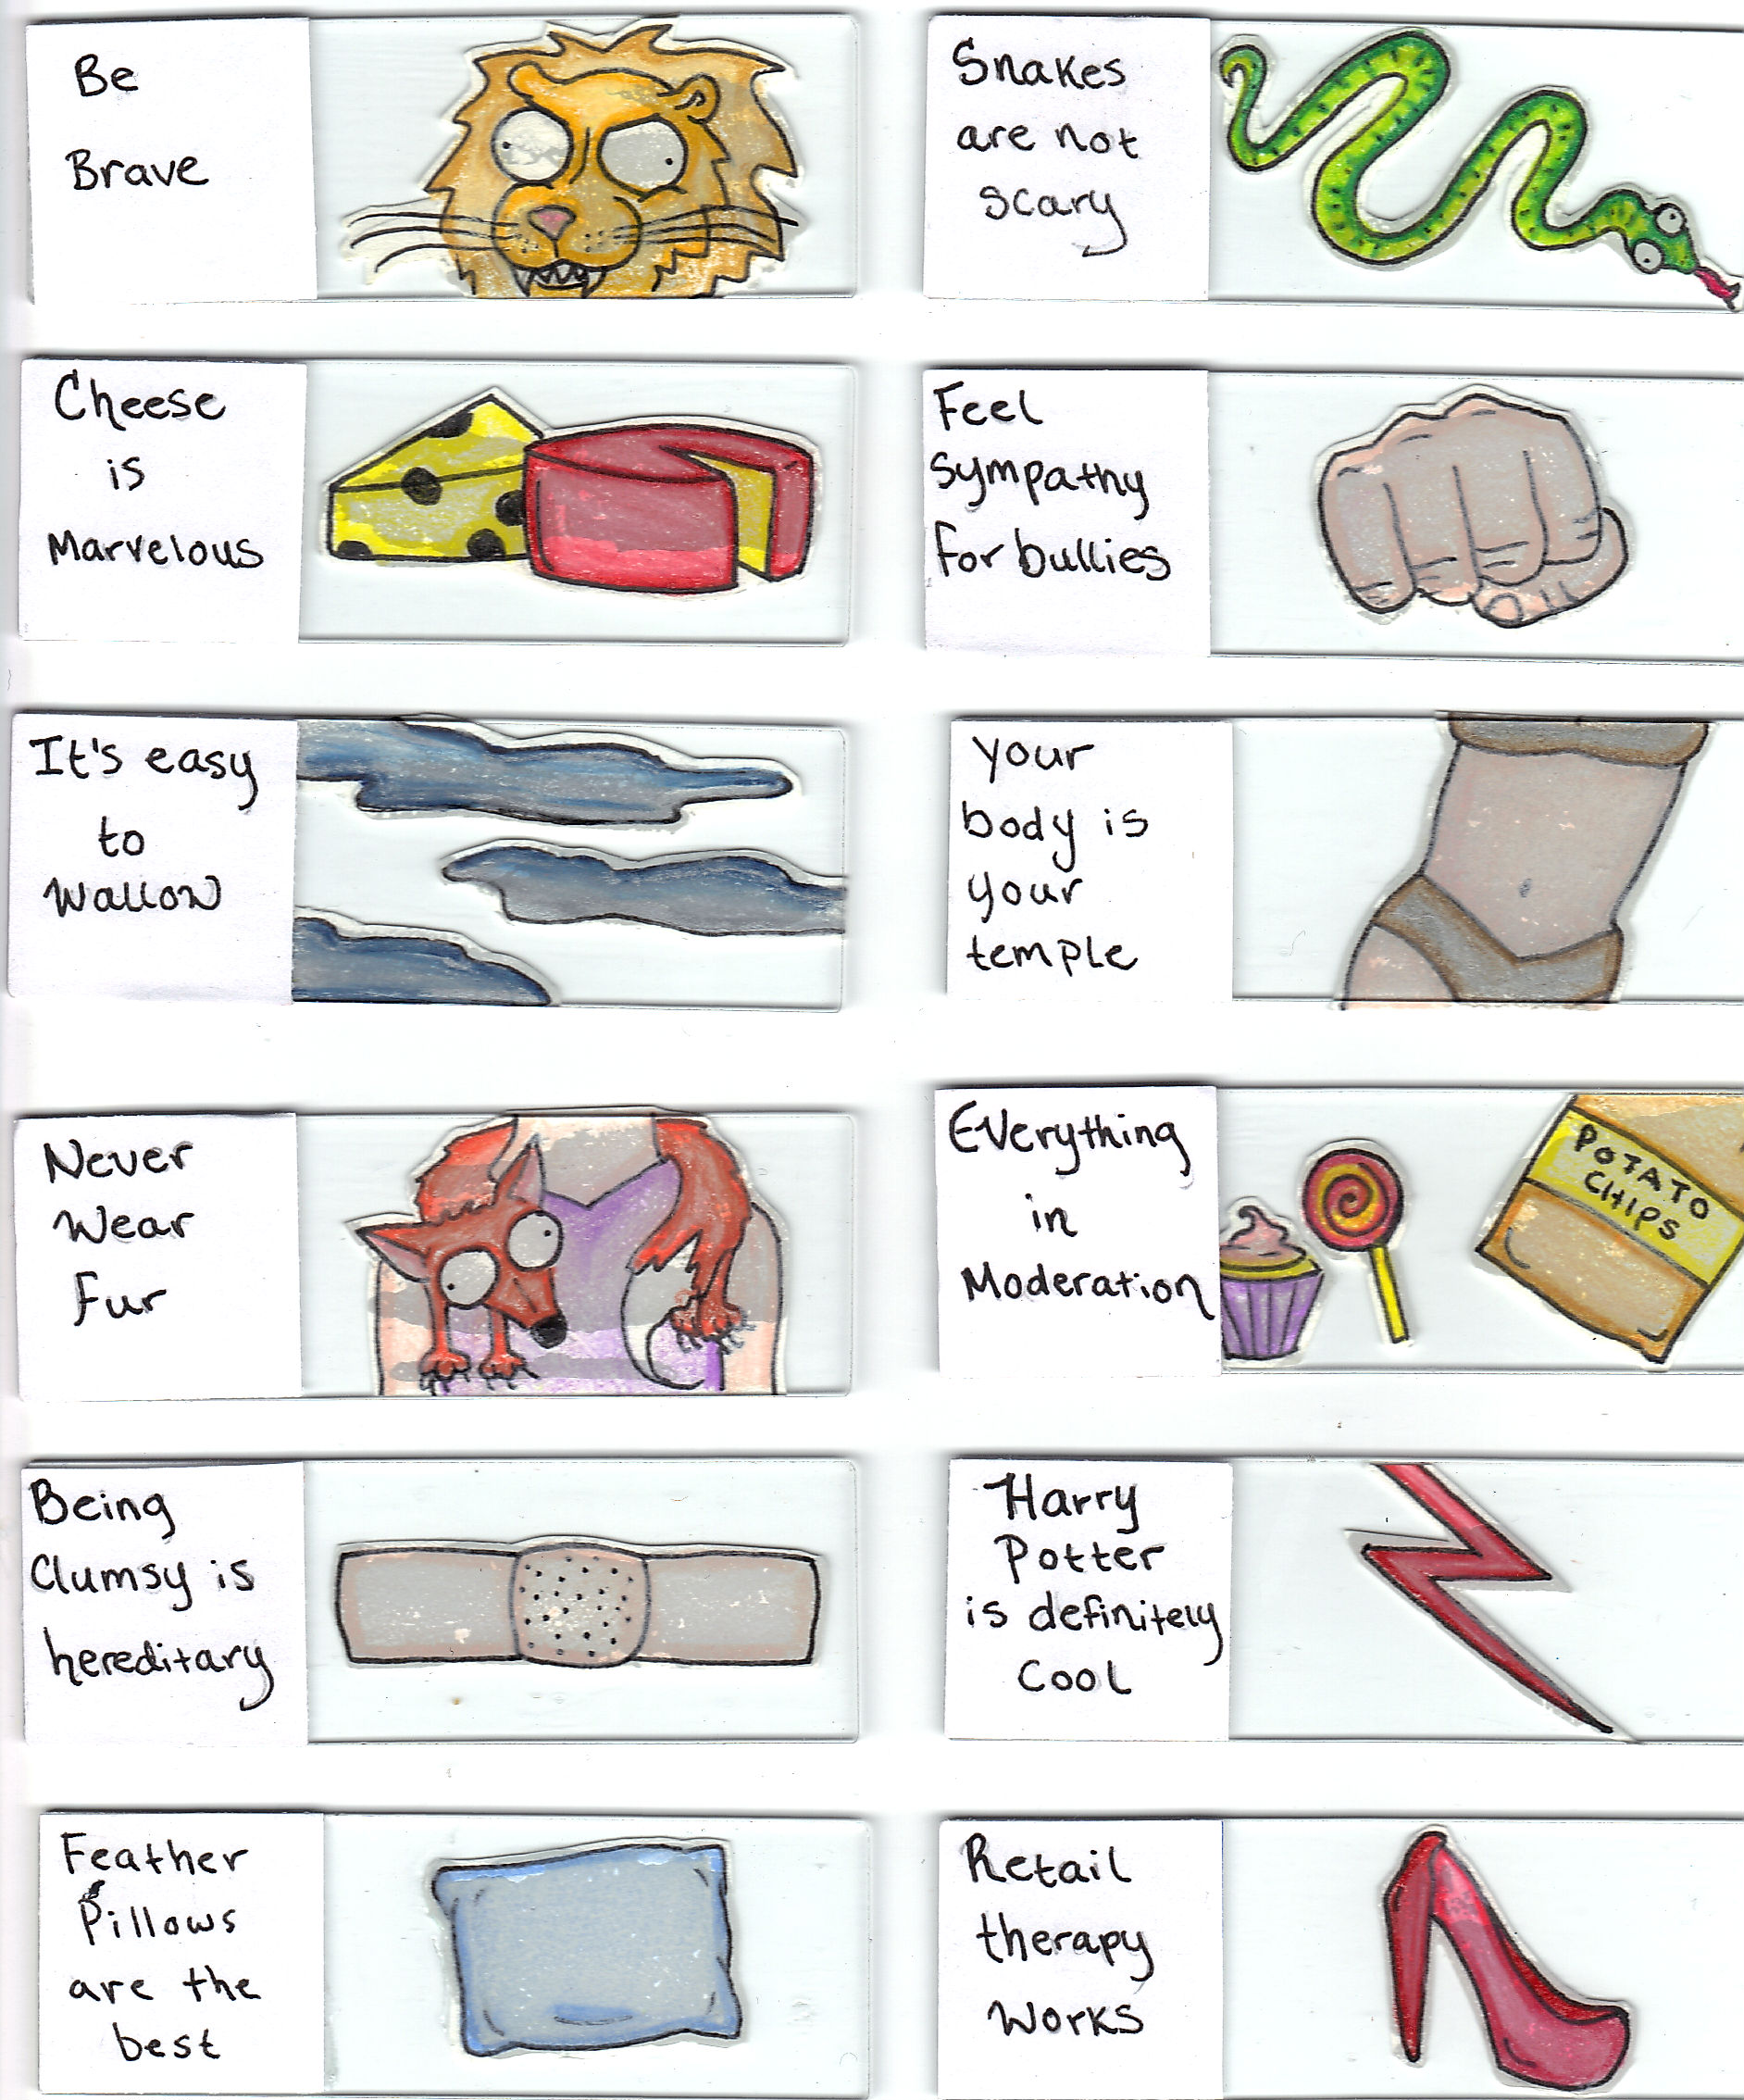 Be
Brave
Snakes
are not
scary
Cheese
is
Marvelous
Feel
sympathy
for bullies
It's easy
to
wallow
Your
body is
your
temple
Never
Wear
Fur
Everything
in
Moderation
POTATO
CHIPS
Being
Clumsy is
hereditary
Harry
Potter
is definitely
Cool
Feather
Pillows
are the
best
Retail
therapy
Works